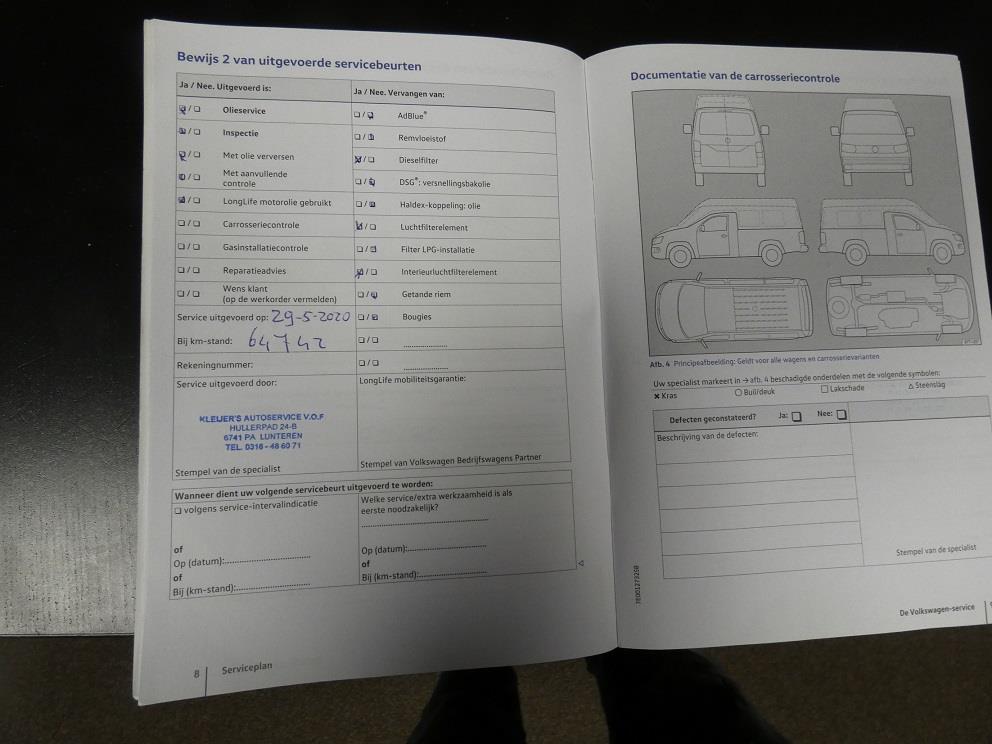 Bewijs 2 van uitgevoerde servicebeurten
Ja / Nee. Uitgevoerd is:
Ja / Nee. Vervangen van:
Olieservice
AdBlue®
Inspectie
Remvloeistof
Met olie verversen
Dieselfilter
Met aanvullende
controle
DSG®: versnellingsbakolie
LongLife motorolie gebruikt
Haldex-koppeling: olie
Carrosseriecontrole
Luchtfilterelement
Gasinstallatiecontrole
Filter LPG-installatie
Reparatieadvies
Interieurluchtfilterelement
Wens klant
(op de werkorder vermelden)
Getande riem
Service uitgevoerd op: 29-5-2020
Bougies
Bij km-stand: 64742
Rekeningnummer:
Service uitgevoerd door:
LongLife mobiliteitsgarantie:
KLEIJER'S AUTOSERVICE V.O.F
HULLERPAD 24-B
6741 PA LUNTEREN
TEL. 0318 - 48 60 71
Stempel van de specialist
Stempel van Volkswagen Bedrijfswagens Partner
Wanneer dient uw volgende servicebeurt uitgevoerd te worden:
volgens service-intervalindicatie
Welke service/extra werkzaamheid is als
eerste noodzakelijk?
of
Op (datum):
of
Bij (km-stand):
Op (datum):
of
Bij (km-stand):
8 Serviceplan
Documentatie van de carrosseriecontrole
Afb. 4 Principeafbeelding: Geldt voor alle wagens en carrosserievarianten
Uw specialist markeert in → afb. 4 beschadigde onderdelen met de volgende symbolen:
✖ Kras ○ Buil/deuk □ Lakschade △ Steenslag
Defecten geconstateerd? Ja: □ Nee: □
Beschrijving van de defecten:
Stempel van de specialist
7E0012732SB
De Volkswagen-service